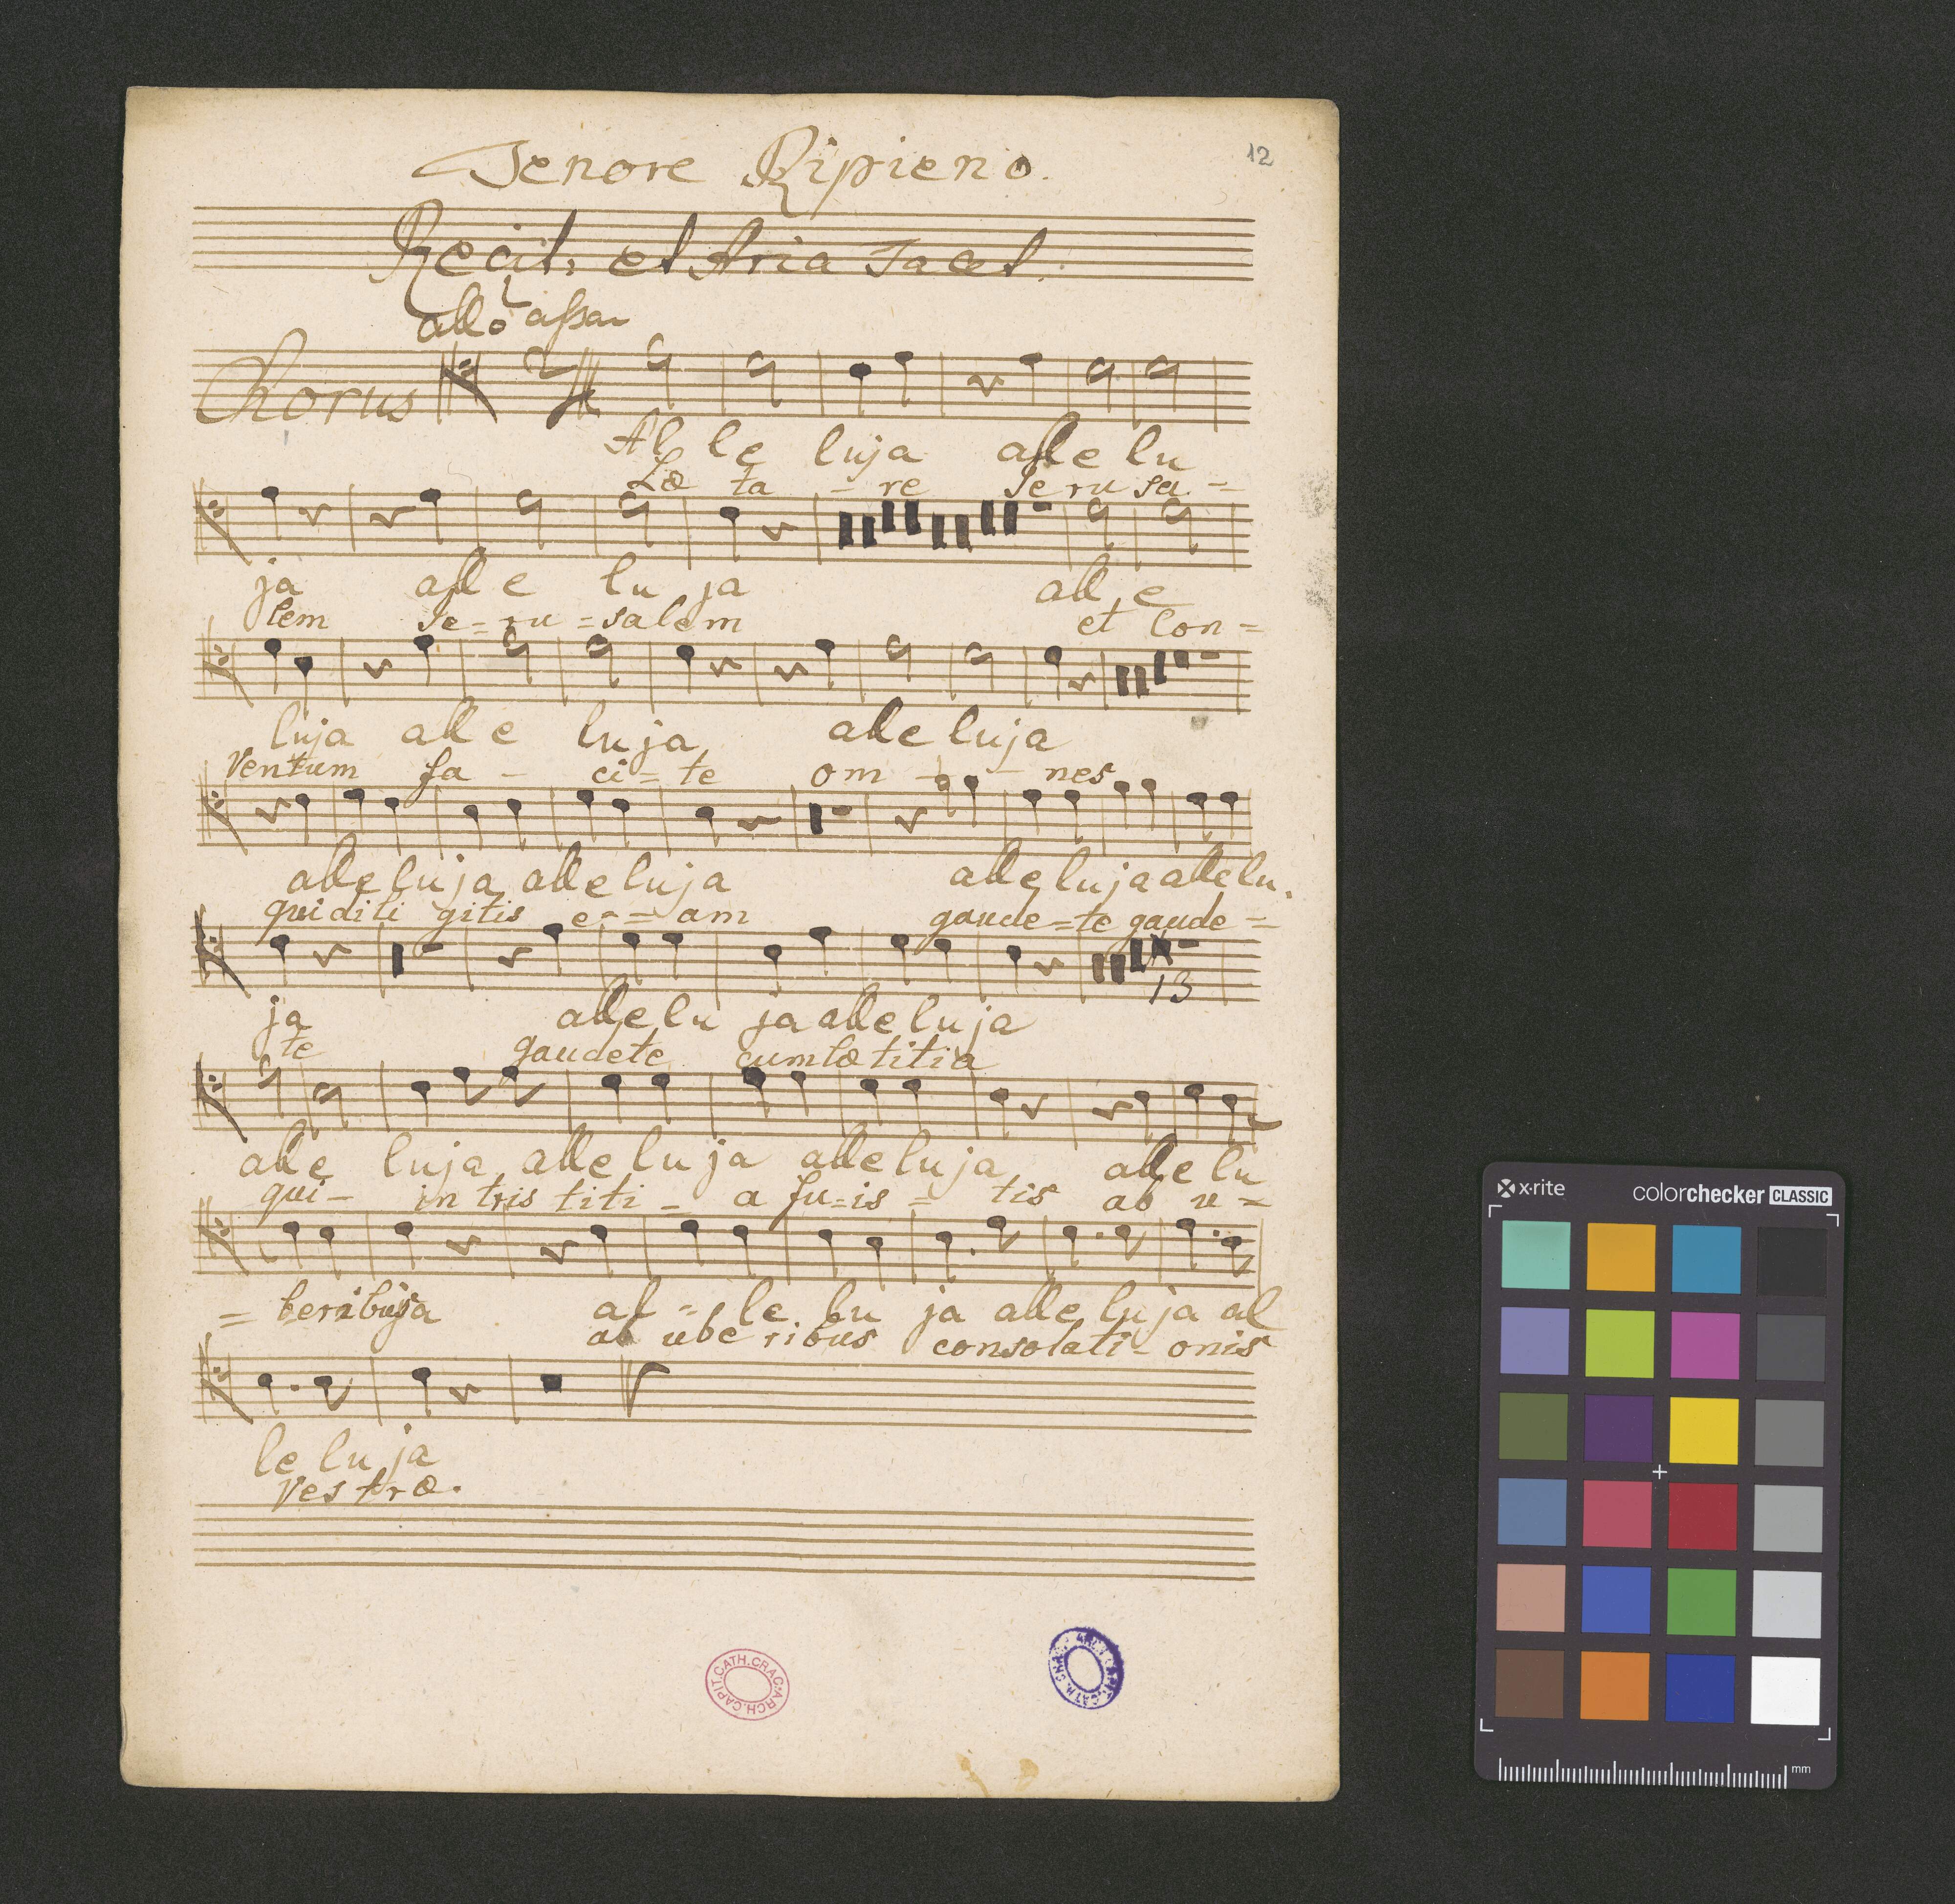 12
Tenore Ripieno.
Recit: et Aria Tacet.
allo assa
Chorus
Al le luja alle lu
Læ ta - re Je ru sa -
ja all e lu ja all e
lem Je - ru = salem et Con =
luja all e luja alleluja
ventum fa - ci = te om - - nes
alleluja alleluja alleluja allelu.
qui dili gitis e - = am gaude = te gaude =
13
ja allelu ja alleluja
te gaudete cum læ titia
alle luja alleluja alleluja allelu
qui - in tris titi - a fu = is = tis ab u =
= beribus ja al = le lu ja alleluja al
ab ube ribus consolati - onis
le lu ja
vestræ.
CATH.CRAC:ARCH.CAPIT.
x-rite colorchecker CLASSIC
mm